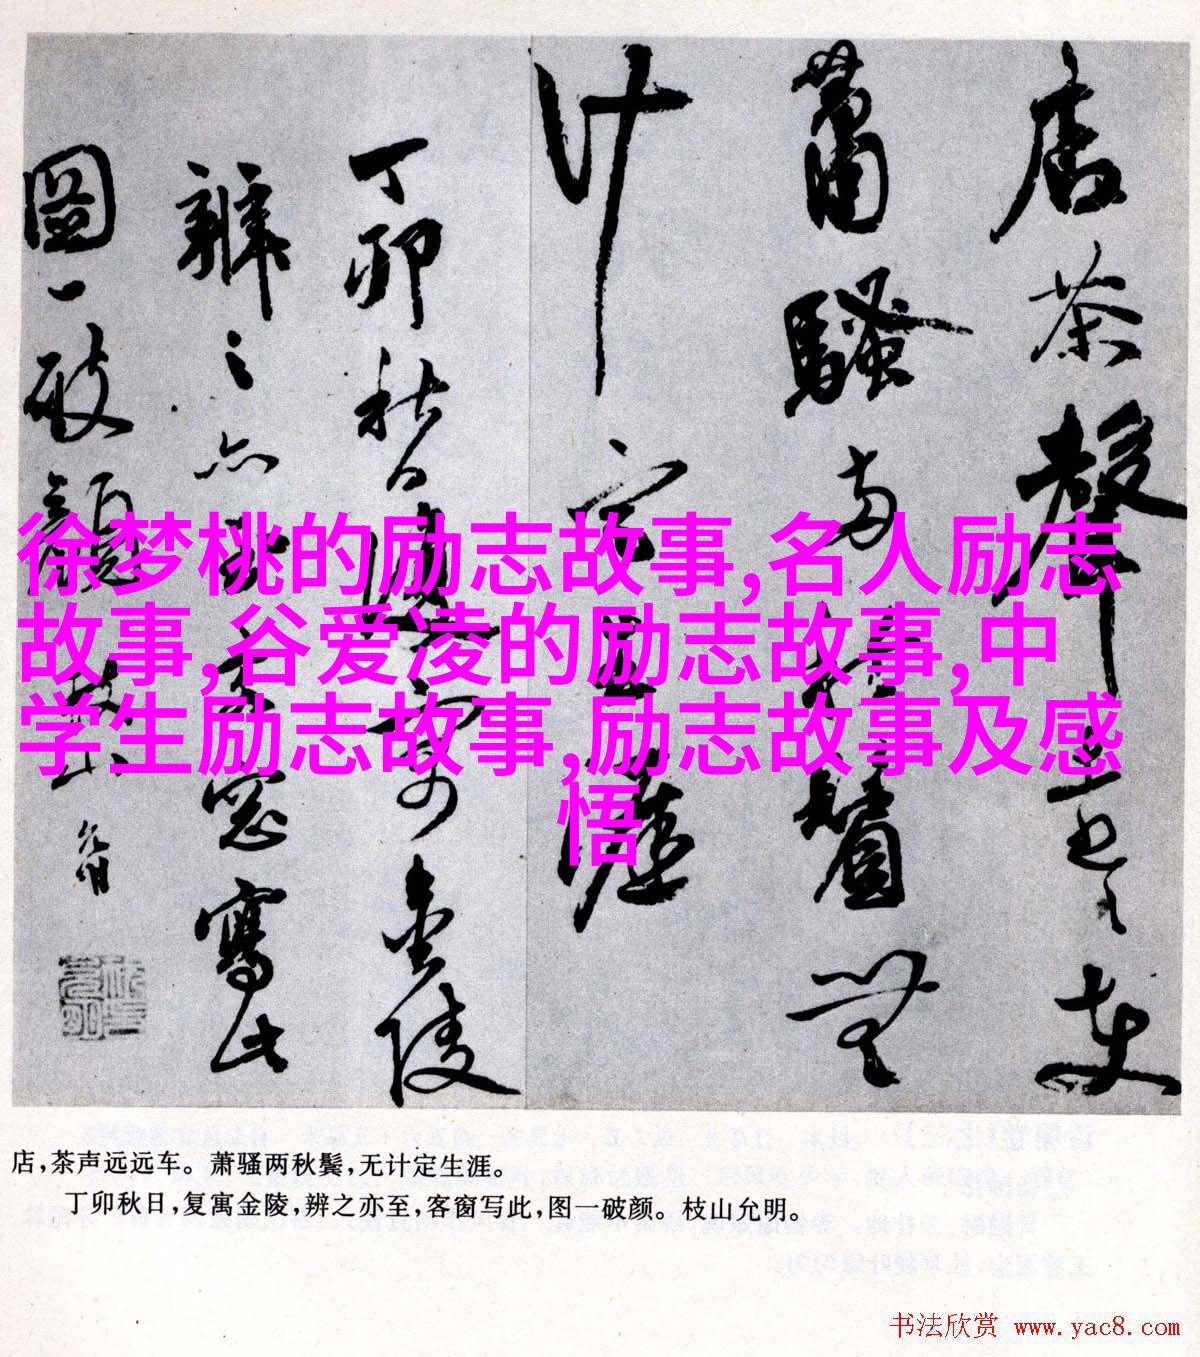 店茶聲遠遠車
蕭騷两秋鬢無
计定生涯
丁卯秋日復寓金陵
辨之亦至客窓寫此
圖一破顏枝山允明
徐梦桃的励志故事,名人励志
故事,谷爱凌的励志故事,中
学生励志故事,励志故事及感
悟
店,茶声远远车。萧骚两秋鬓,无计定生涯。
丁卯秋日,复寓金陵,辨之亦至,客窗写此,图一破颜。枝山允明。
书法欣赏 www.yac8.com